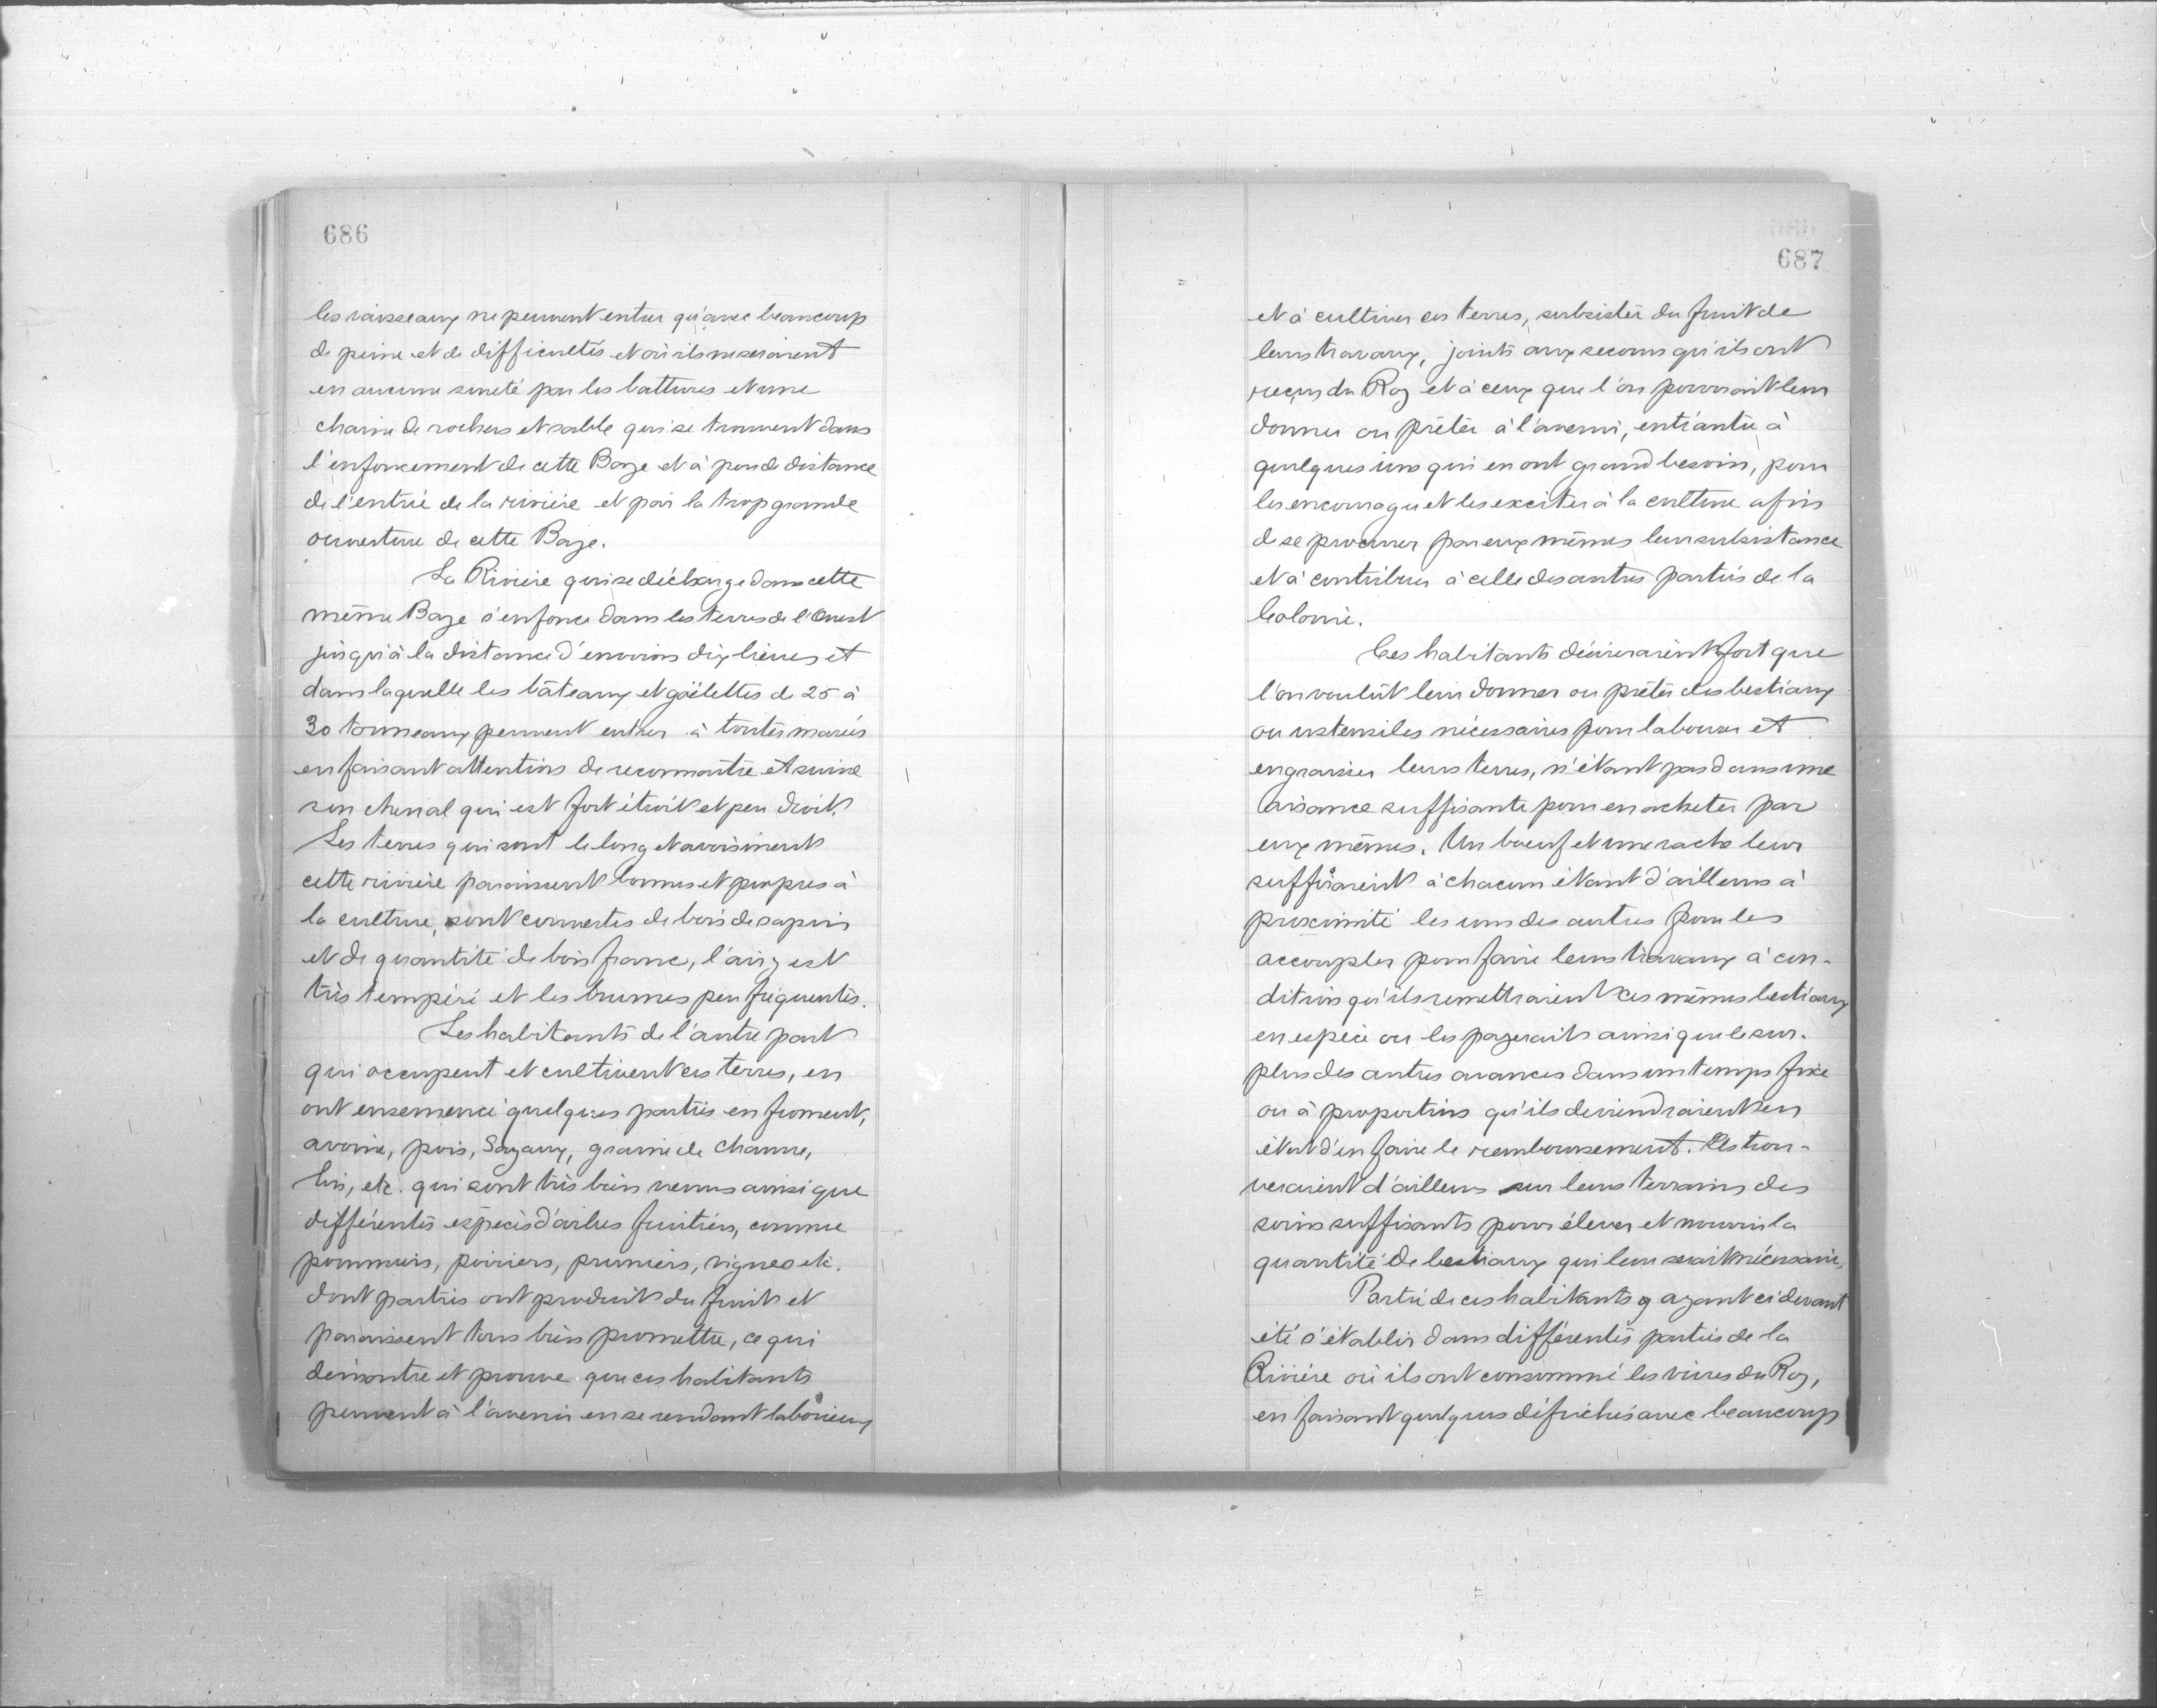 686
les vaisseaux ne peuvent entrer qu'avec beaucoup
de peine et de difficultés et où ils ne seraient
en aucune sureté par les battures et une
chaine de rochers et sable qui se trouvent dans
l'enfoncement de cette Baye et à peu de distance
de l'entrée de la rivière et par la trop grande
ouverture de cette Baye.
La Rivière qui se décharge dans cette
même Baye s'enfonce dans les terres de l'Ouest
jusqu'à la distance d'environ dix lieues et
dans laquelle les bâteaux et goëlettes de 25 à
30 tonneaux peuvent entrer à toutes marées
en faisant attention de reconnaitre et suivre
son chenal qui est fort étroit et peu droit.
Les terres qui sont le long et avoisinent
cette rivière paraissent bonnes et propres à
la culture, sont couvertes de bois de sapin
et de quantité de bois franc, l'air y est
très tempéré et les brumes peu fréquentes.
Les habitants de l'autre part
qui occupent et cultivent ces terres, en
ont ensemencé quelques parties en froment,
avoine, pois, Sayaux, graine de chanvre,
lin, etc. qui sont très bien venus ainsi que
différentes espèces d'arbres fruitiers, comme
pommiers, poiriers, pruniers, vignes etc.
dont parties ont produit du fruit et
paraissent tous bien promettre, ce qui
démontre et prouve que ces habitants
peuvent à l'avenir en se rendant laborieux
687
et à cultiver ces terres, subsister du fruit de
leurs travaux, joints aux secours qu'ils ont
reçus du Roy et à ceux que l'on pourrait leur
donner ou prêter à l'avenir, entr'autre à
quelques uns qui en ont grand besoin, pour
les encourager et les exciter à la culture afin
de se procurer par eux mêmes leur subsistance
et à contribuer à celle des autres parties de la
Colonie.
Ces habitants désireraient fort que
l'on voulût leur donner ou prêter des bestiaux
ou ustensiles nécessaires pour labourer et
engraisser leurs terres, n'étant pas dans une
aisance suffisante pour en acheter par
eux mêmes. Un boeuf et une vache leur
suffiraient à chacun étant d'ailleurs à
proximité les uns des autres pour les
accoupler pour faire leurs travaux à con-
dition qu'ils remettraient ces mêmes bestiaux
en espèce ou les payeraient ainsi que le sur-
plus des autres avances dans un temps fixe
ou à proportion qu'ils deviendraient en
état d'en faire le remboursement. Ils trou-
veraient d'ailleurs sur leurs terrains des
soins suffisants pour élever et nourrir la
quantité de bestiaux qui leur serait nécessaire,
Partie de ces habitants y ayant ci devant
été s'établir dans différentes parties de la
Rivière où ils ont consommé les vivres du Roy,
en faisant quelques défrichés avec beaucoup